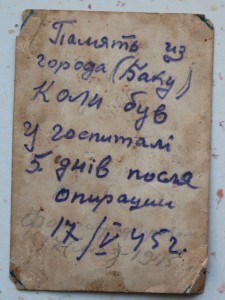 Память из
города (Баку)
Коли був
у госпиталі
5. днів посля
опирации
17/V 45 г.